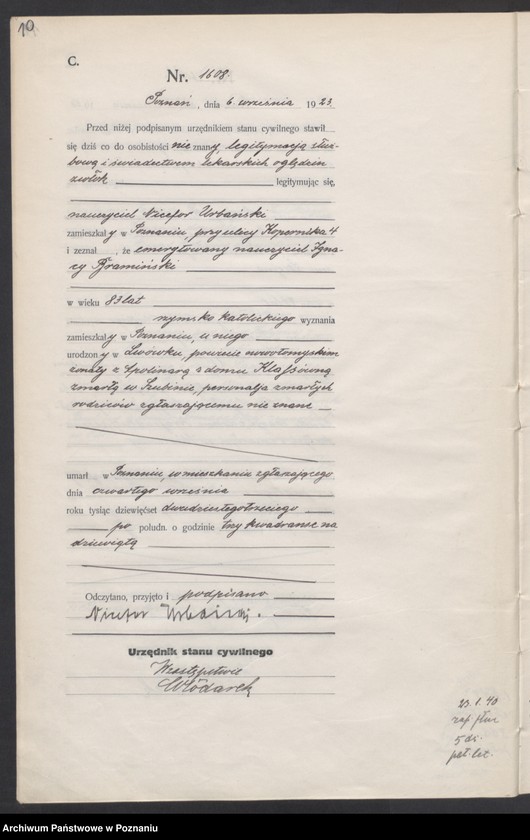 10
C.
Nr. 1608.
Poznań, dnia 6. września 1923.
Przed niżej podpisanym urzędnikiem stanu cywilnego stawił
się dziś co do osobistości nieznany, legitymacją służ-
bową i świadectwem lekarskich oględzin
zwłok legitymując się,
nauczyciel Nicefor Urbański
zamieszkały w Poznaniu, przy ulicy Kopernika 4
i zeznał, że emerytowany nauczyciel Igna-
cy Bramiński
w wieku 83 lat
rzymsko katolickiego wyznania
zamieszkały w Poznaniu, u niego
urodzony w Lwówku, powiecie nowotomyskim
żonaty z Apolinarą z domu
zmarłą w Szubinie, personalja zmarłych
rodziców zgłaszającemu nie znane
umarł w Poznaniu, w mieszkaniu zgłaszającego
dnia czwartego września
roku tysiąc dziewięćset dwudziestego trzeciego
po połudn. o godzinie trzy kwadranse na
dziewiątą
Odczytano, przyjęto i podpisano
Nicefor Urbański.
Urzędnik stanu cywilnego
W zastępstwie
Włodarek
23.1.40
Archiwum Państwowe w Poznaniu